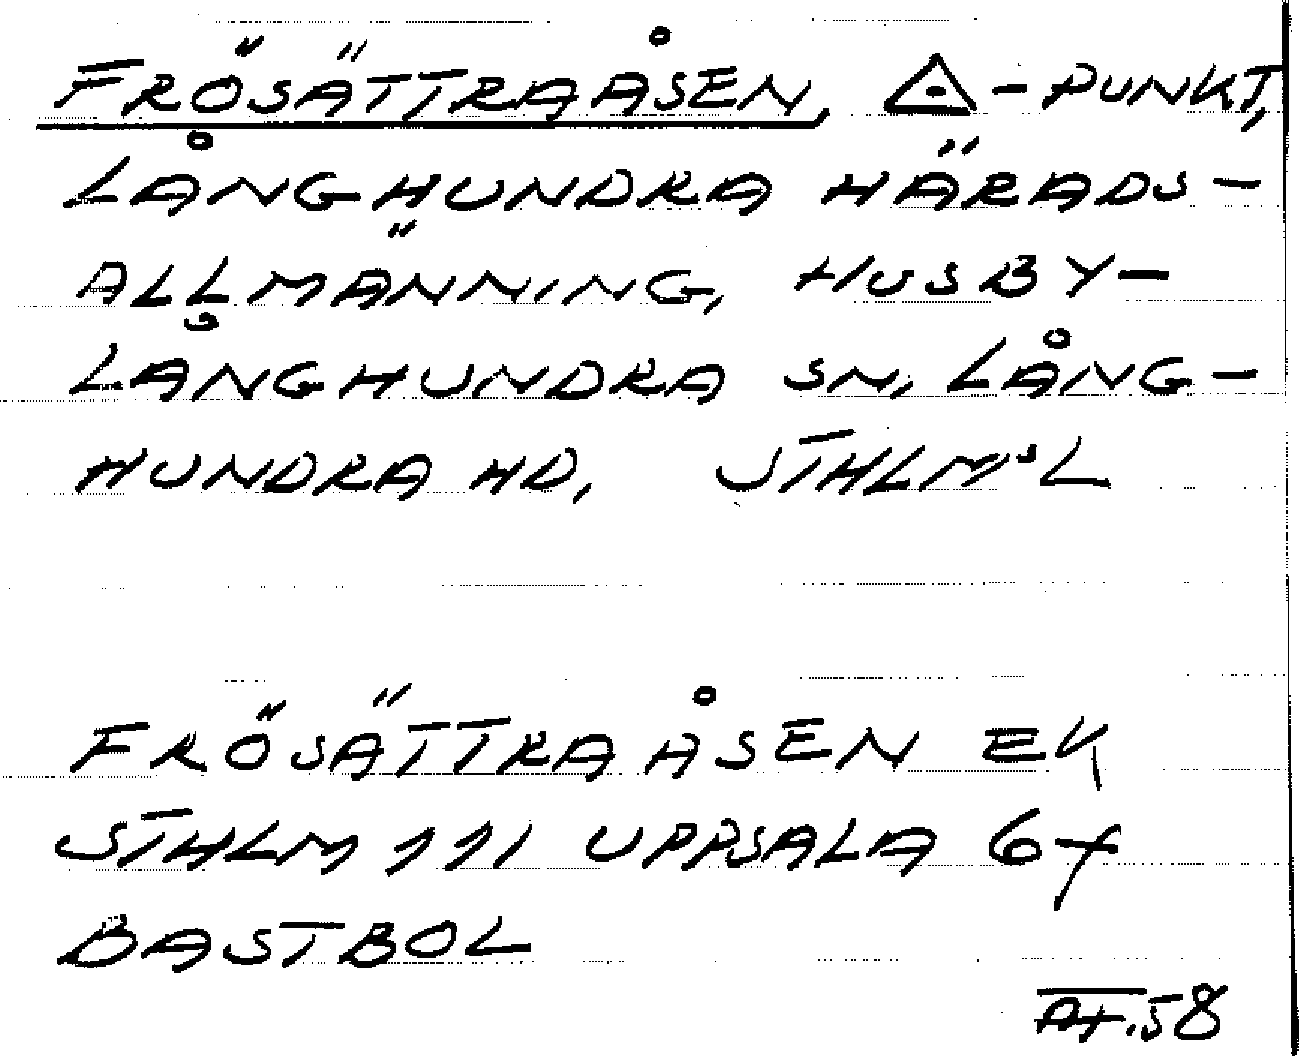 FRÖSÄTTRAÅSEN, △-PUNKT,
LÅNGHUNDRA HÄRADS-
ALLMÄNNING, HUSBY-
LÅNGHUNDRA SN, LÅNG-
HUNDRA HD, STHLM'S L
FRÖSÄTTRAÅSEN EK
STHLM 111 UPPSALA 67
BASTBOL
58